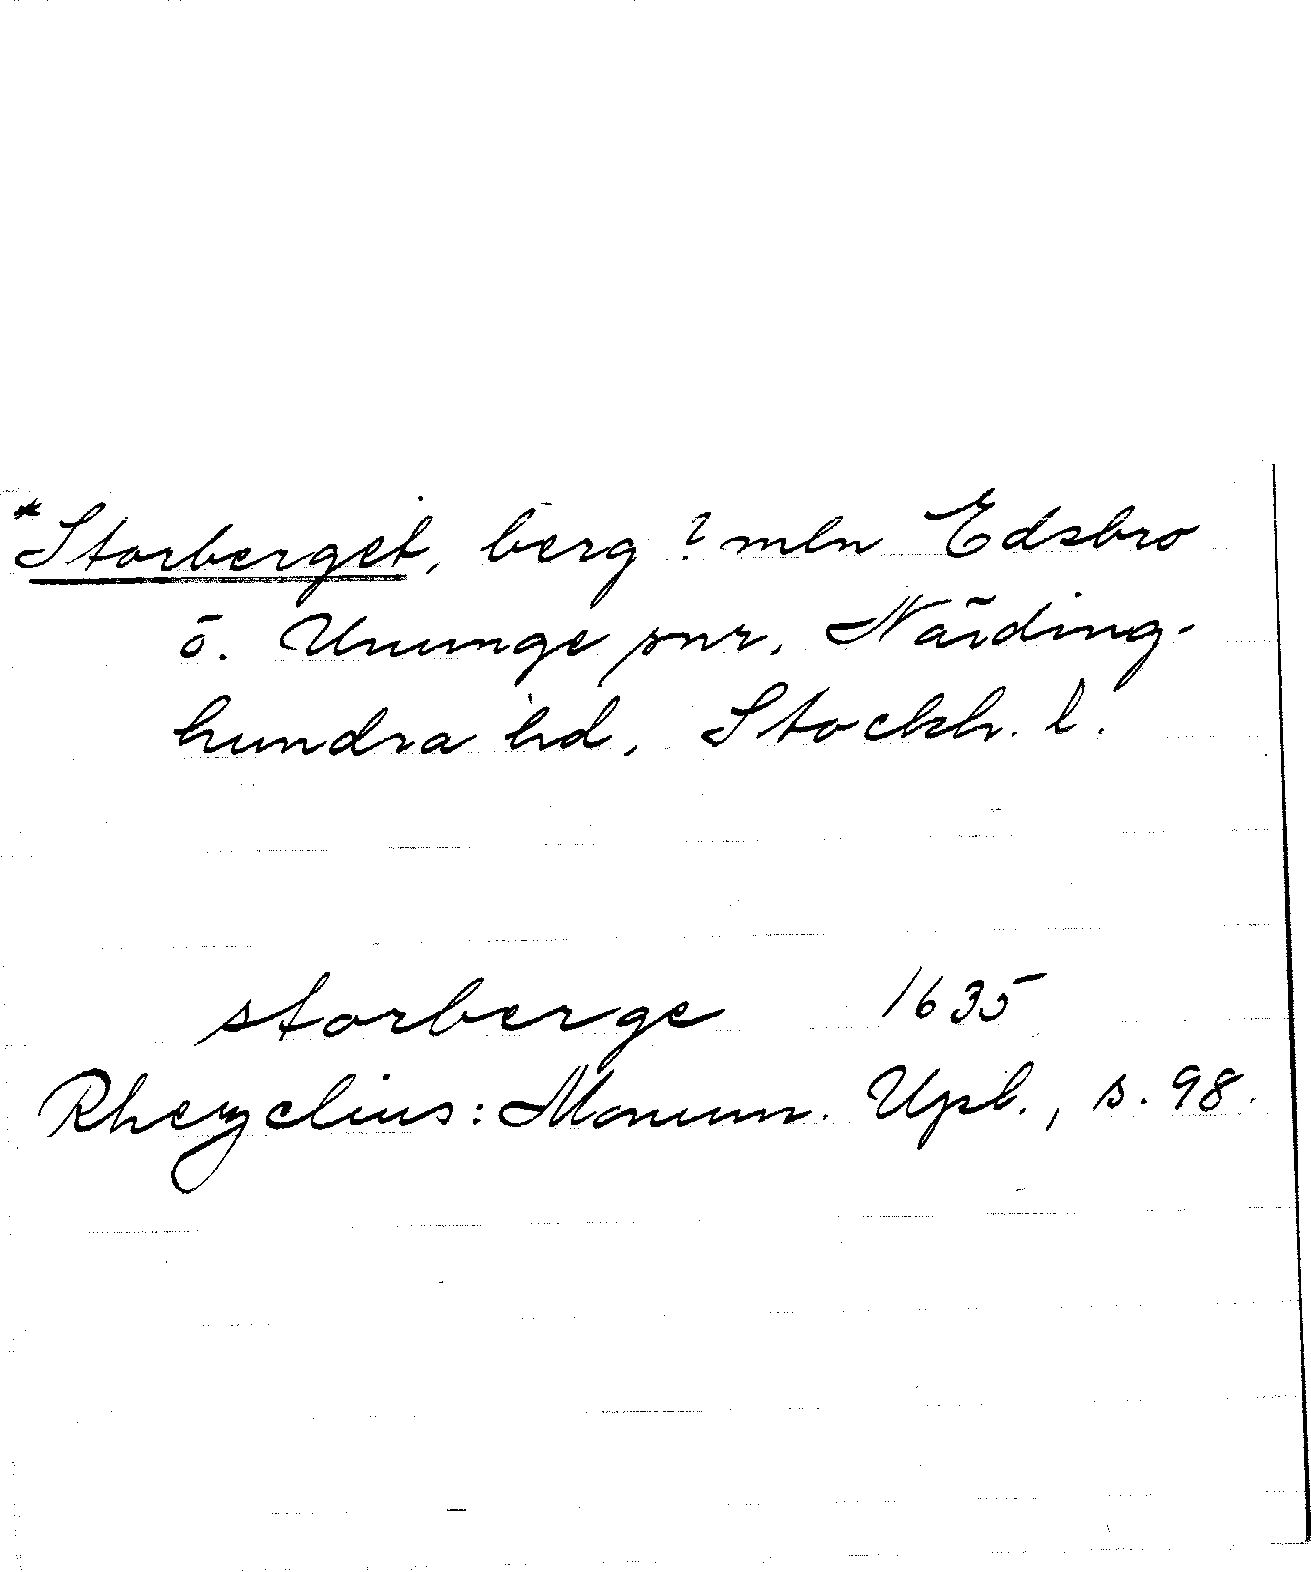 *Storberget, berg ? mln Edsbro
o. Ununge snr, Närding-
hundra hd, Stockh. l.
storberge 1635
Rhezelius: Monum. Upl., s. 98.